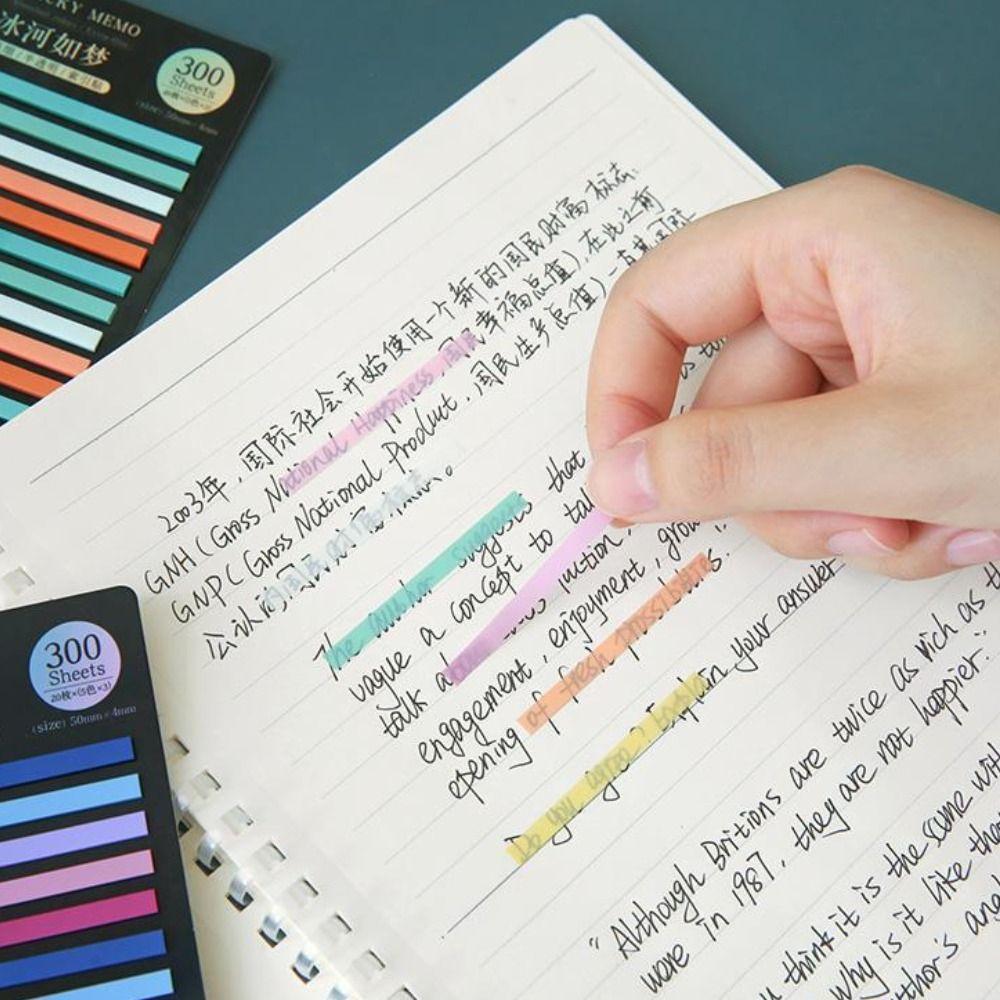 KY MEMO
冰河如梦
300
Sheets
2003年，国际社会开始使用一个新的国民财富标志.
GNH (Gross National Happiness，国民幸福点值), 在此之前
GNP (Gross National Product，国民生产点值) 一直是国际
公认的国民财富标志。
The author suggests that
vague a concept to
talk about
engagement, enjoyment,
opening of fresh possibilities.
Do you agree? Explain your answer
"Although Britions are twice as rich as
ware in 1987, they are not happier."
think it is the same with
Why is it like
thor's
300
Sheets
20枚×(5色×3)
(size) 50mm×4mm